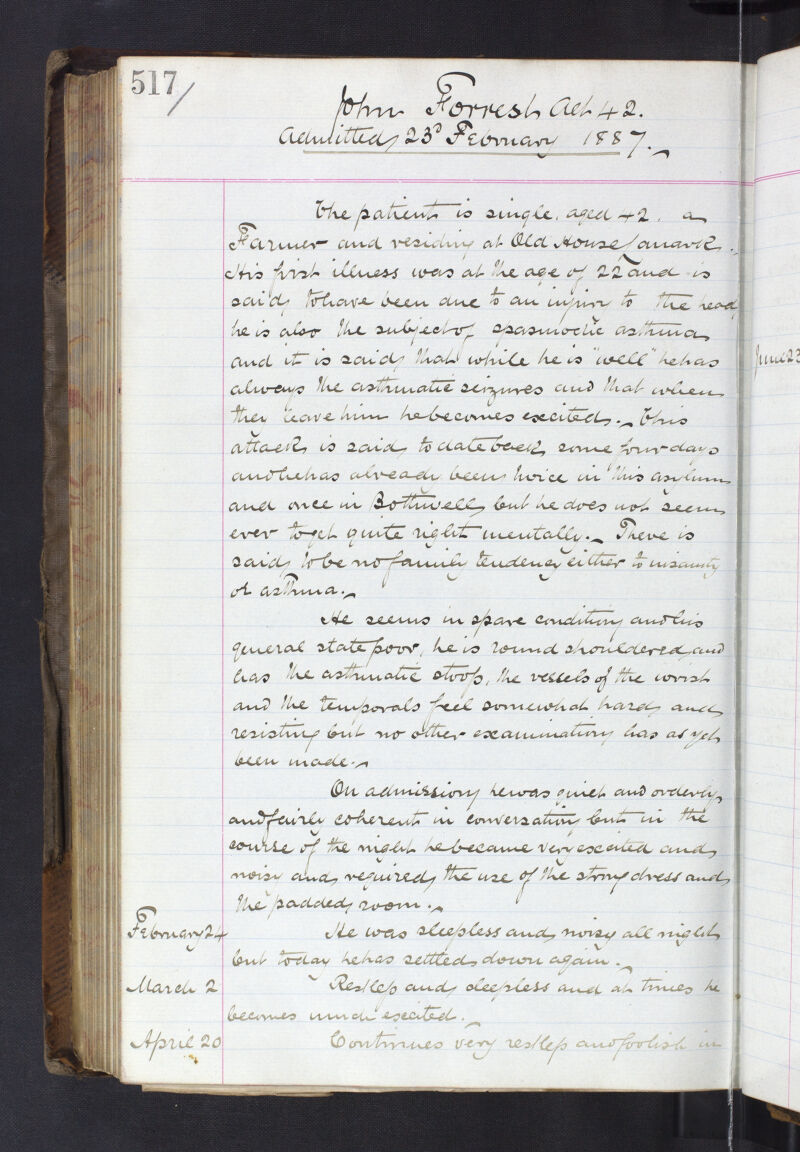 517/
John Forrest Aet 42.
Admitted 23d February 1887.
The patient is single, aged 42, a
Farmer and residing at Old House Lanark.
His first illness was at the age of 22 and is
said to have been due to an injury to the head
he is also the subject of spasmodic asthma
and it is said that while he is "well" he has
always the asthmatic seizures and that when
they leave him he becomes excited. This
attack is said to date back some four days
and he has already been twice in this asylum
and once in Bothwell, but he does not seem
ever to get quite right mentally. There is
said to be no family tendency either to insanity
or asthma.
He seems in spare condition and his
general state poor, he is round shouldered and
has the asthmatic stoop, the vessels of the wrist
and the temporals feel somewhat hard and
resisting but no other examination has as yet
been made.
On admission he was quiet and orderly,
and fairly coherent in conversation but in the
course of the night he became very excited and
noisy and required the use of the strong dress and
the padded room.
February 24 He was sleepless and noisy all night
but today he has settled down again.
March 2 Restless and sleepless and at times he
becomes much excited.
April 20 Continues very restless and foolish in
June 23